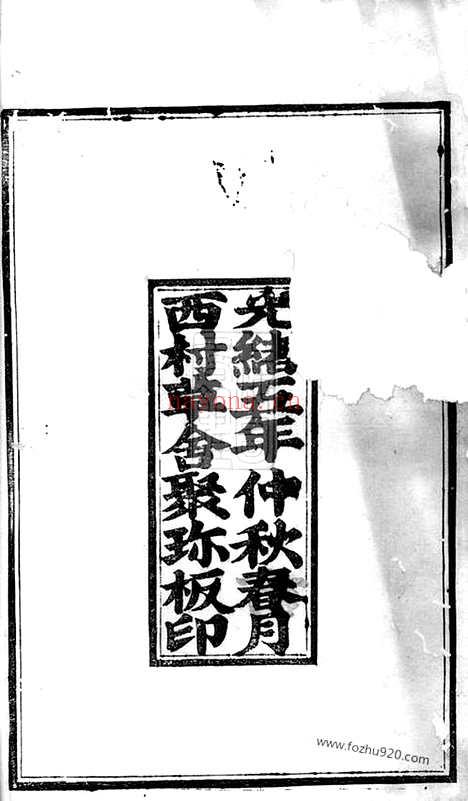 光緒五年仲秋春月
西村會聚珎板印
www.fozhu920.com